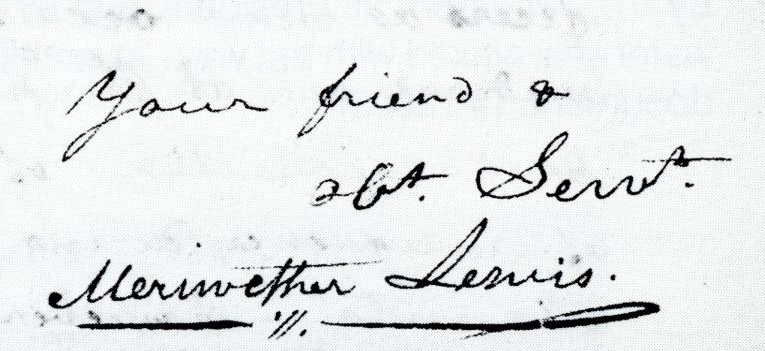 Your friend &
Obt. Servt.
Meriwether Lewis.